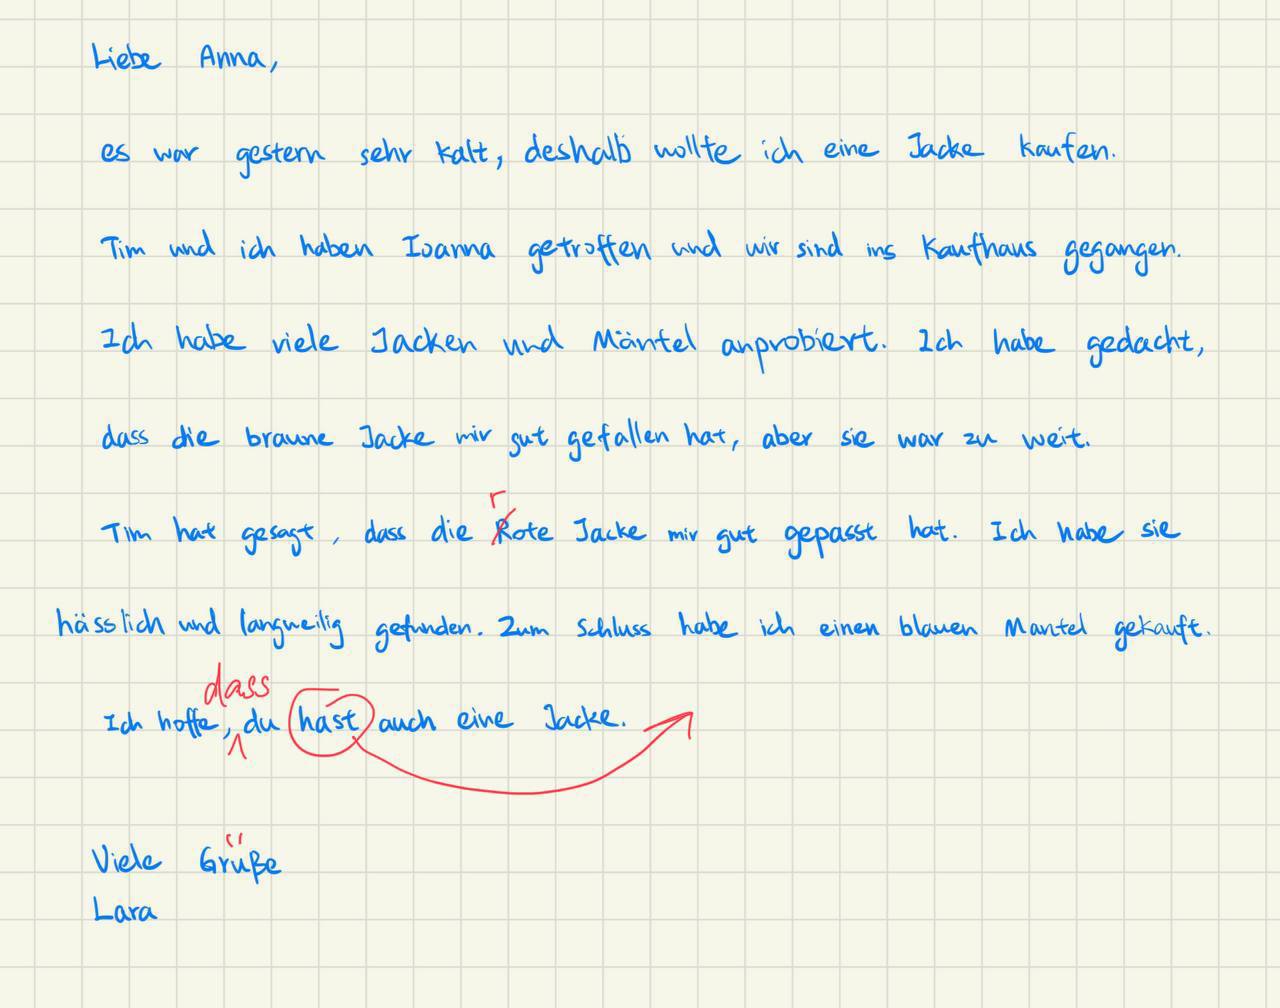 Liebe Anna,
es war gestern sehr kalt, deshalb wollte ich eine Jacke kaufen.
Tim und ich haben Ioanna getroffen und wir sind ins Kaufhaus gegangen.
Ich habe viele Jacken und Mäntel anprobiert. Ich habe gedacht,
dass die braune Jacke mir gut gefallen hat, aber sie war zu weit.
r
Tim hat gesagt, dass die Rote Jacke mir gut gepasst hat. Ich habe sie
hässlich und langweilig gefunden. Zum Schluss habe ich einen blauen Mantel gekauft.
dass
Ich hoffe, du hast auch eine Jacke.
Viele Grüße
Lara